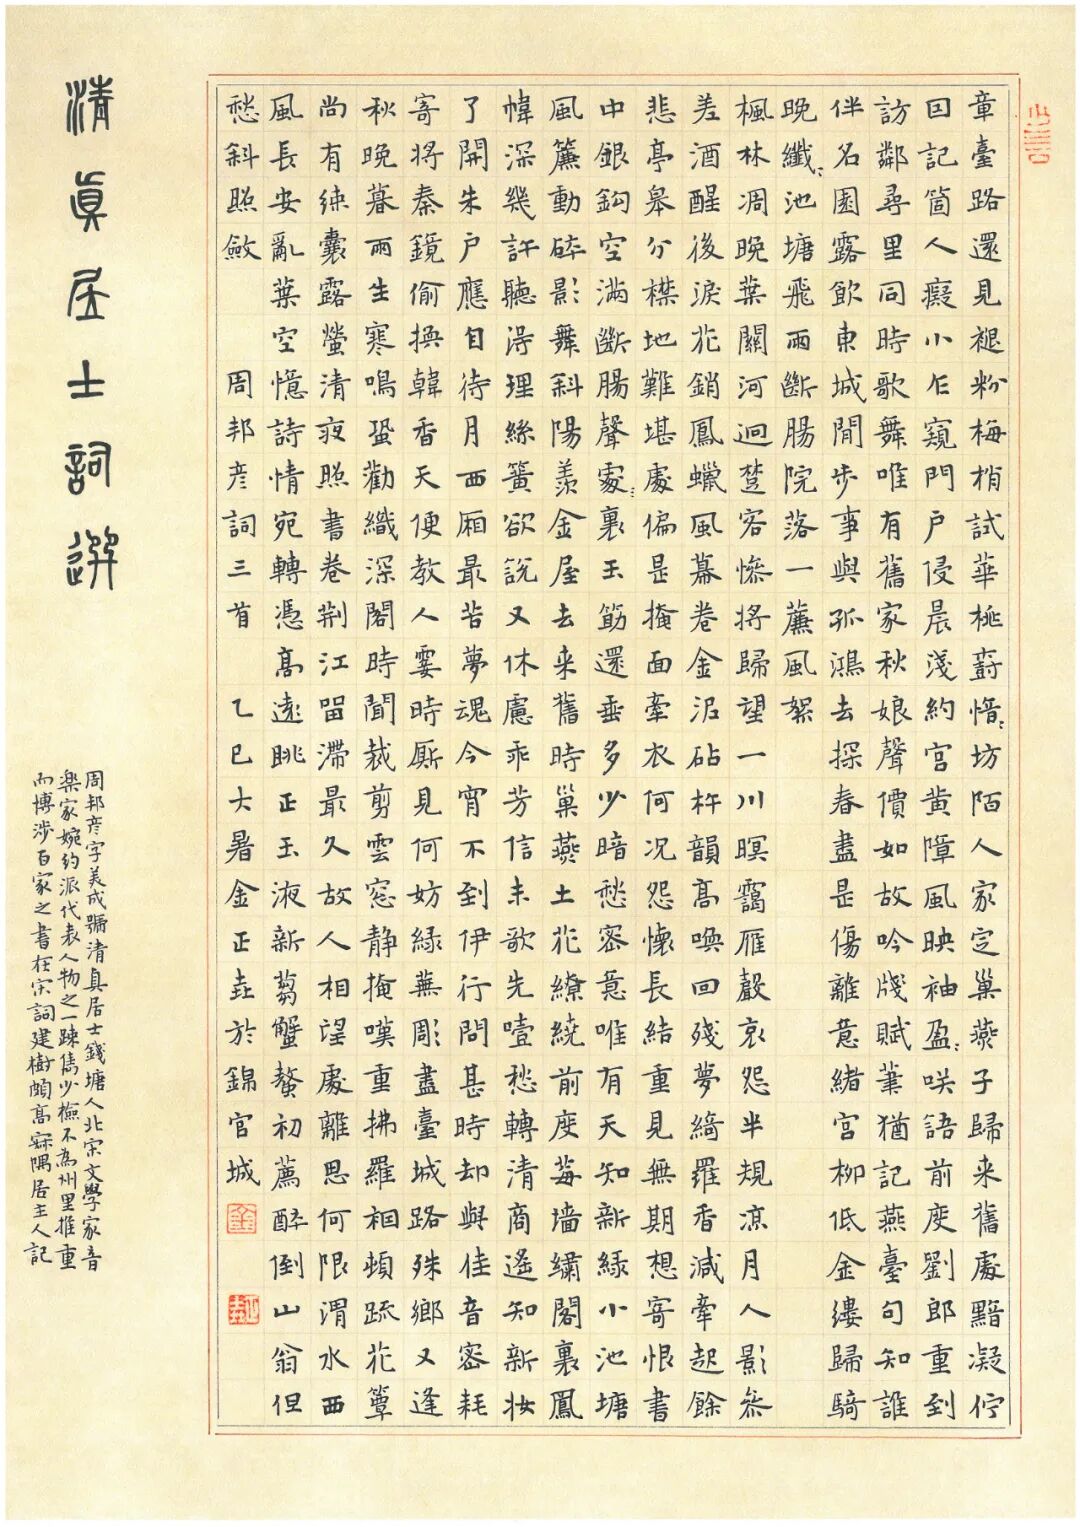 章臺路還見褪粉梅梢試華桃樹愔〻坊陌人家定巢燕子歸来舊處黯凝佇
因記箇人癡小乍窺門戶侵晨淺約宮黃障風映袖盈〻咲語前度劉郎重到
訪鄰尋里同時歌舞唯有舊家秋娘聲價如故吟牋賦筆猶記燕臺句知誰
伴名園露飲東城閒步事與孤鴻去探春盡是傷離意緒宮柳低金縷歸騎
晚纖〻池塘飛雨斷腸院落一簾風絮
楓林凋晚葉關河迥楚客慘將歸望一川暝靄雁聲哀怨半規涼月人影參
差酒醒後淚花銷鳳蠟風幕卷金泥砧杵韻高喚回殘夢綺羅香減牽起餘
悲亭皋分襟地難堪處偏是掩面牽衣何況怨懷長結重見無期想寄恨書
中銀鈎空滿斷腸聲處〻裏玉筯還垂多少暗愁密意唯有天知新綠小池塘
風簾動碎影舞斜陽羨金屋去来舊時巢燕土花繚繞前度莓墙繡閣裏鳳
幃深幾許聽得理絲簧欲說又休慮乖芳信未歌先噎愁轉清商遙知新妝
了開朱戶應自待月西廂最苦夢魂今宵不到伊行問甚時却與佳音密耗
寄將秦鏡偷換韓香天便教人霎時厮見何妨綠蕪彫盡臺城路殊鄉又逢
秋晚暮雨生寒鳴蛩勸織深閣時聞裁剪雲窓靜掩嘆重拂羅裀頓疏花簟
尚有練囊露螢清夜照書卷荊江留滯最久故人相望處離思何限渭水西
風長安亂葉空憶詩情宛轉憑高遠眺正玉液新篘蟹螯初薦醉倒山翁但
愁斜照斂 周邦彥詞三首 乙巳大暑金正垚於錦官城
清真居士詞選
周邦彥字美成號清真居士錢塘人北宋文學家音
樂家婉約派代表人物之一疎雋少檢不為州里推重
而博涉百家之書在宋詞建樹頗高寐隅居主人記